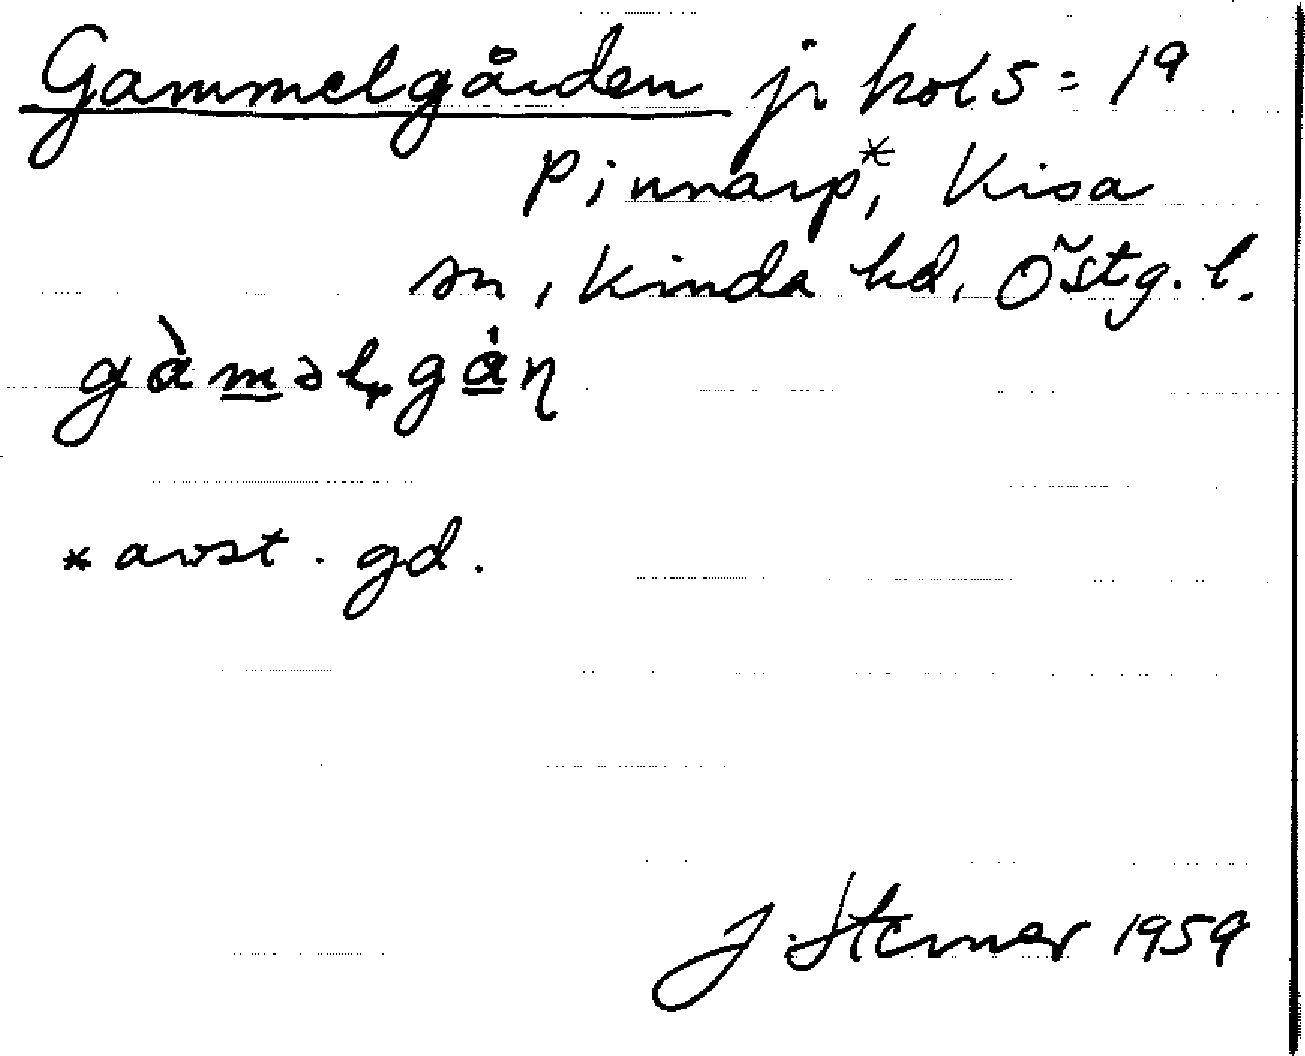 Gammelgården jr kols = 1a
Pinnarp*, Kisa
sn, Kinda hd, Östg. l.
gàmǝlˌgȧɳ
* avst. gd.
J. Sterner 1959